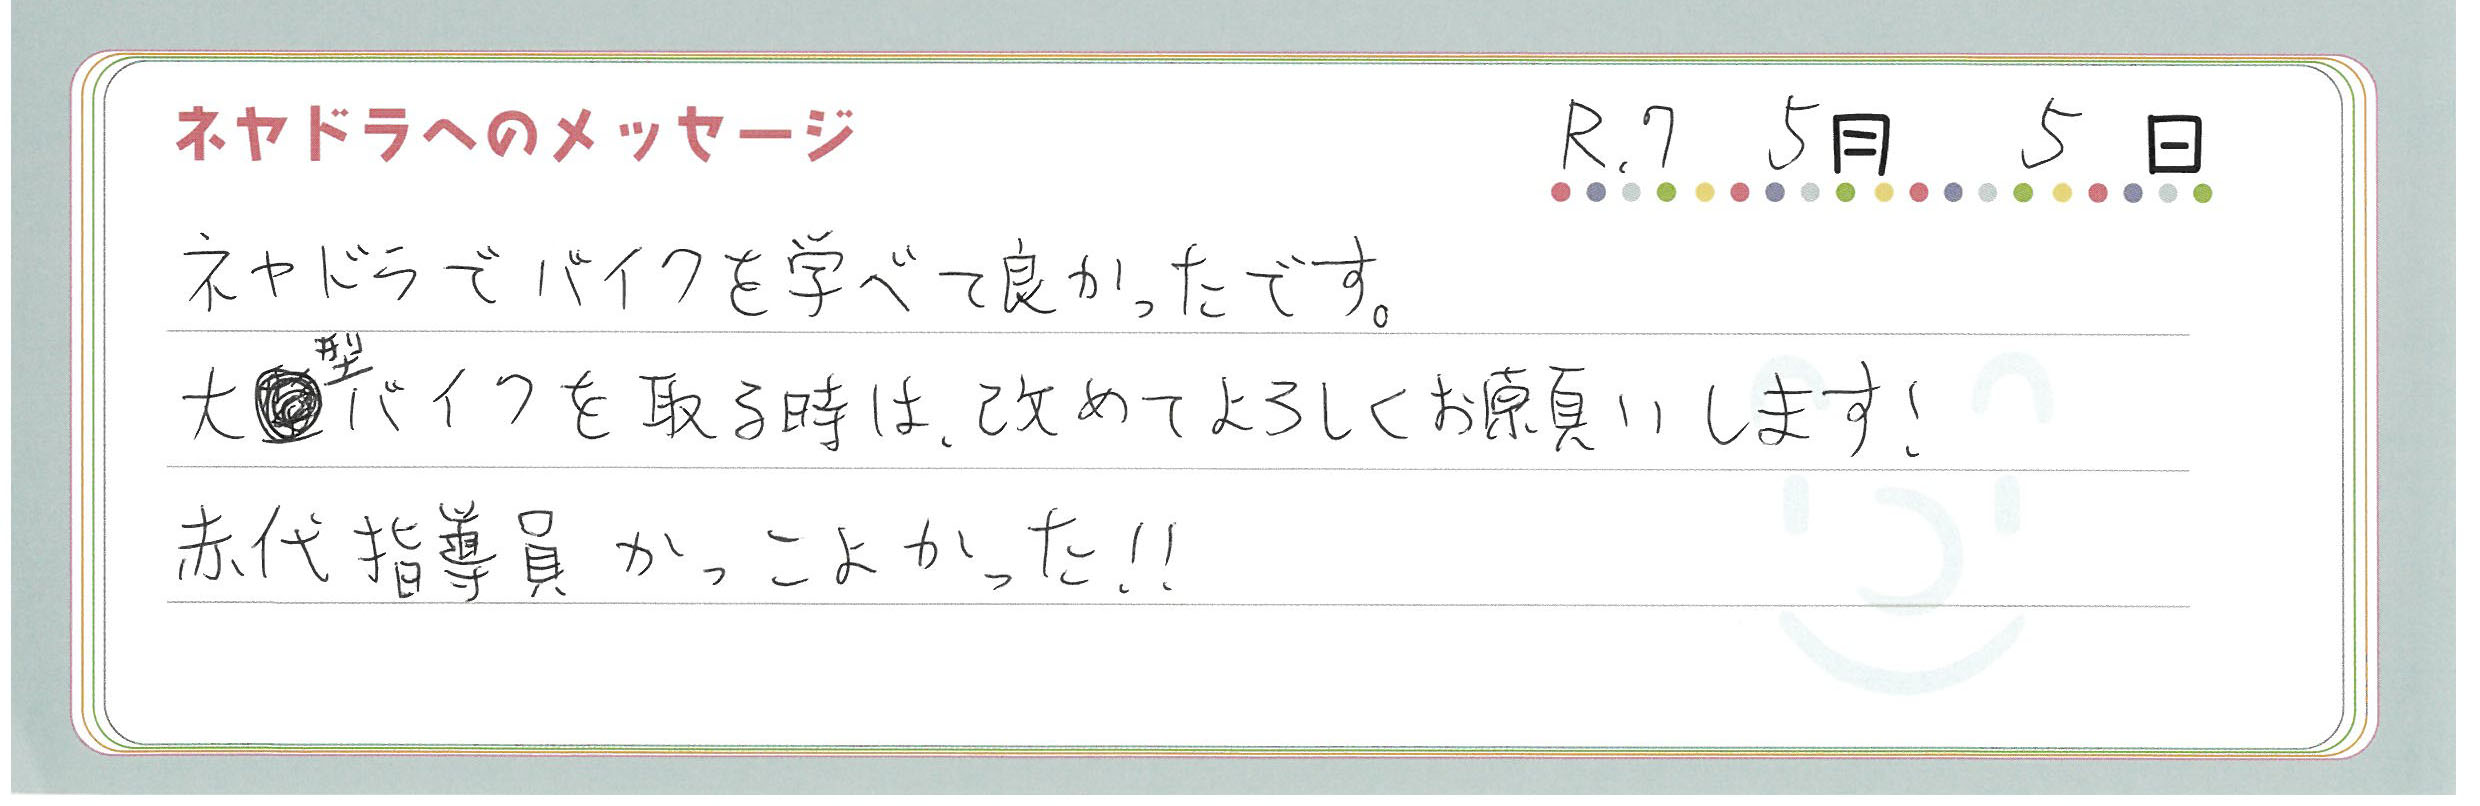 ネヤドラへのメッセージ
R.7 5月 5日
ネヤドラでバイクを学べて良かったです。
大型バイクを取る時は、改めてよろしくお願いします！
赤代指導員かっこよかった!!